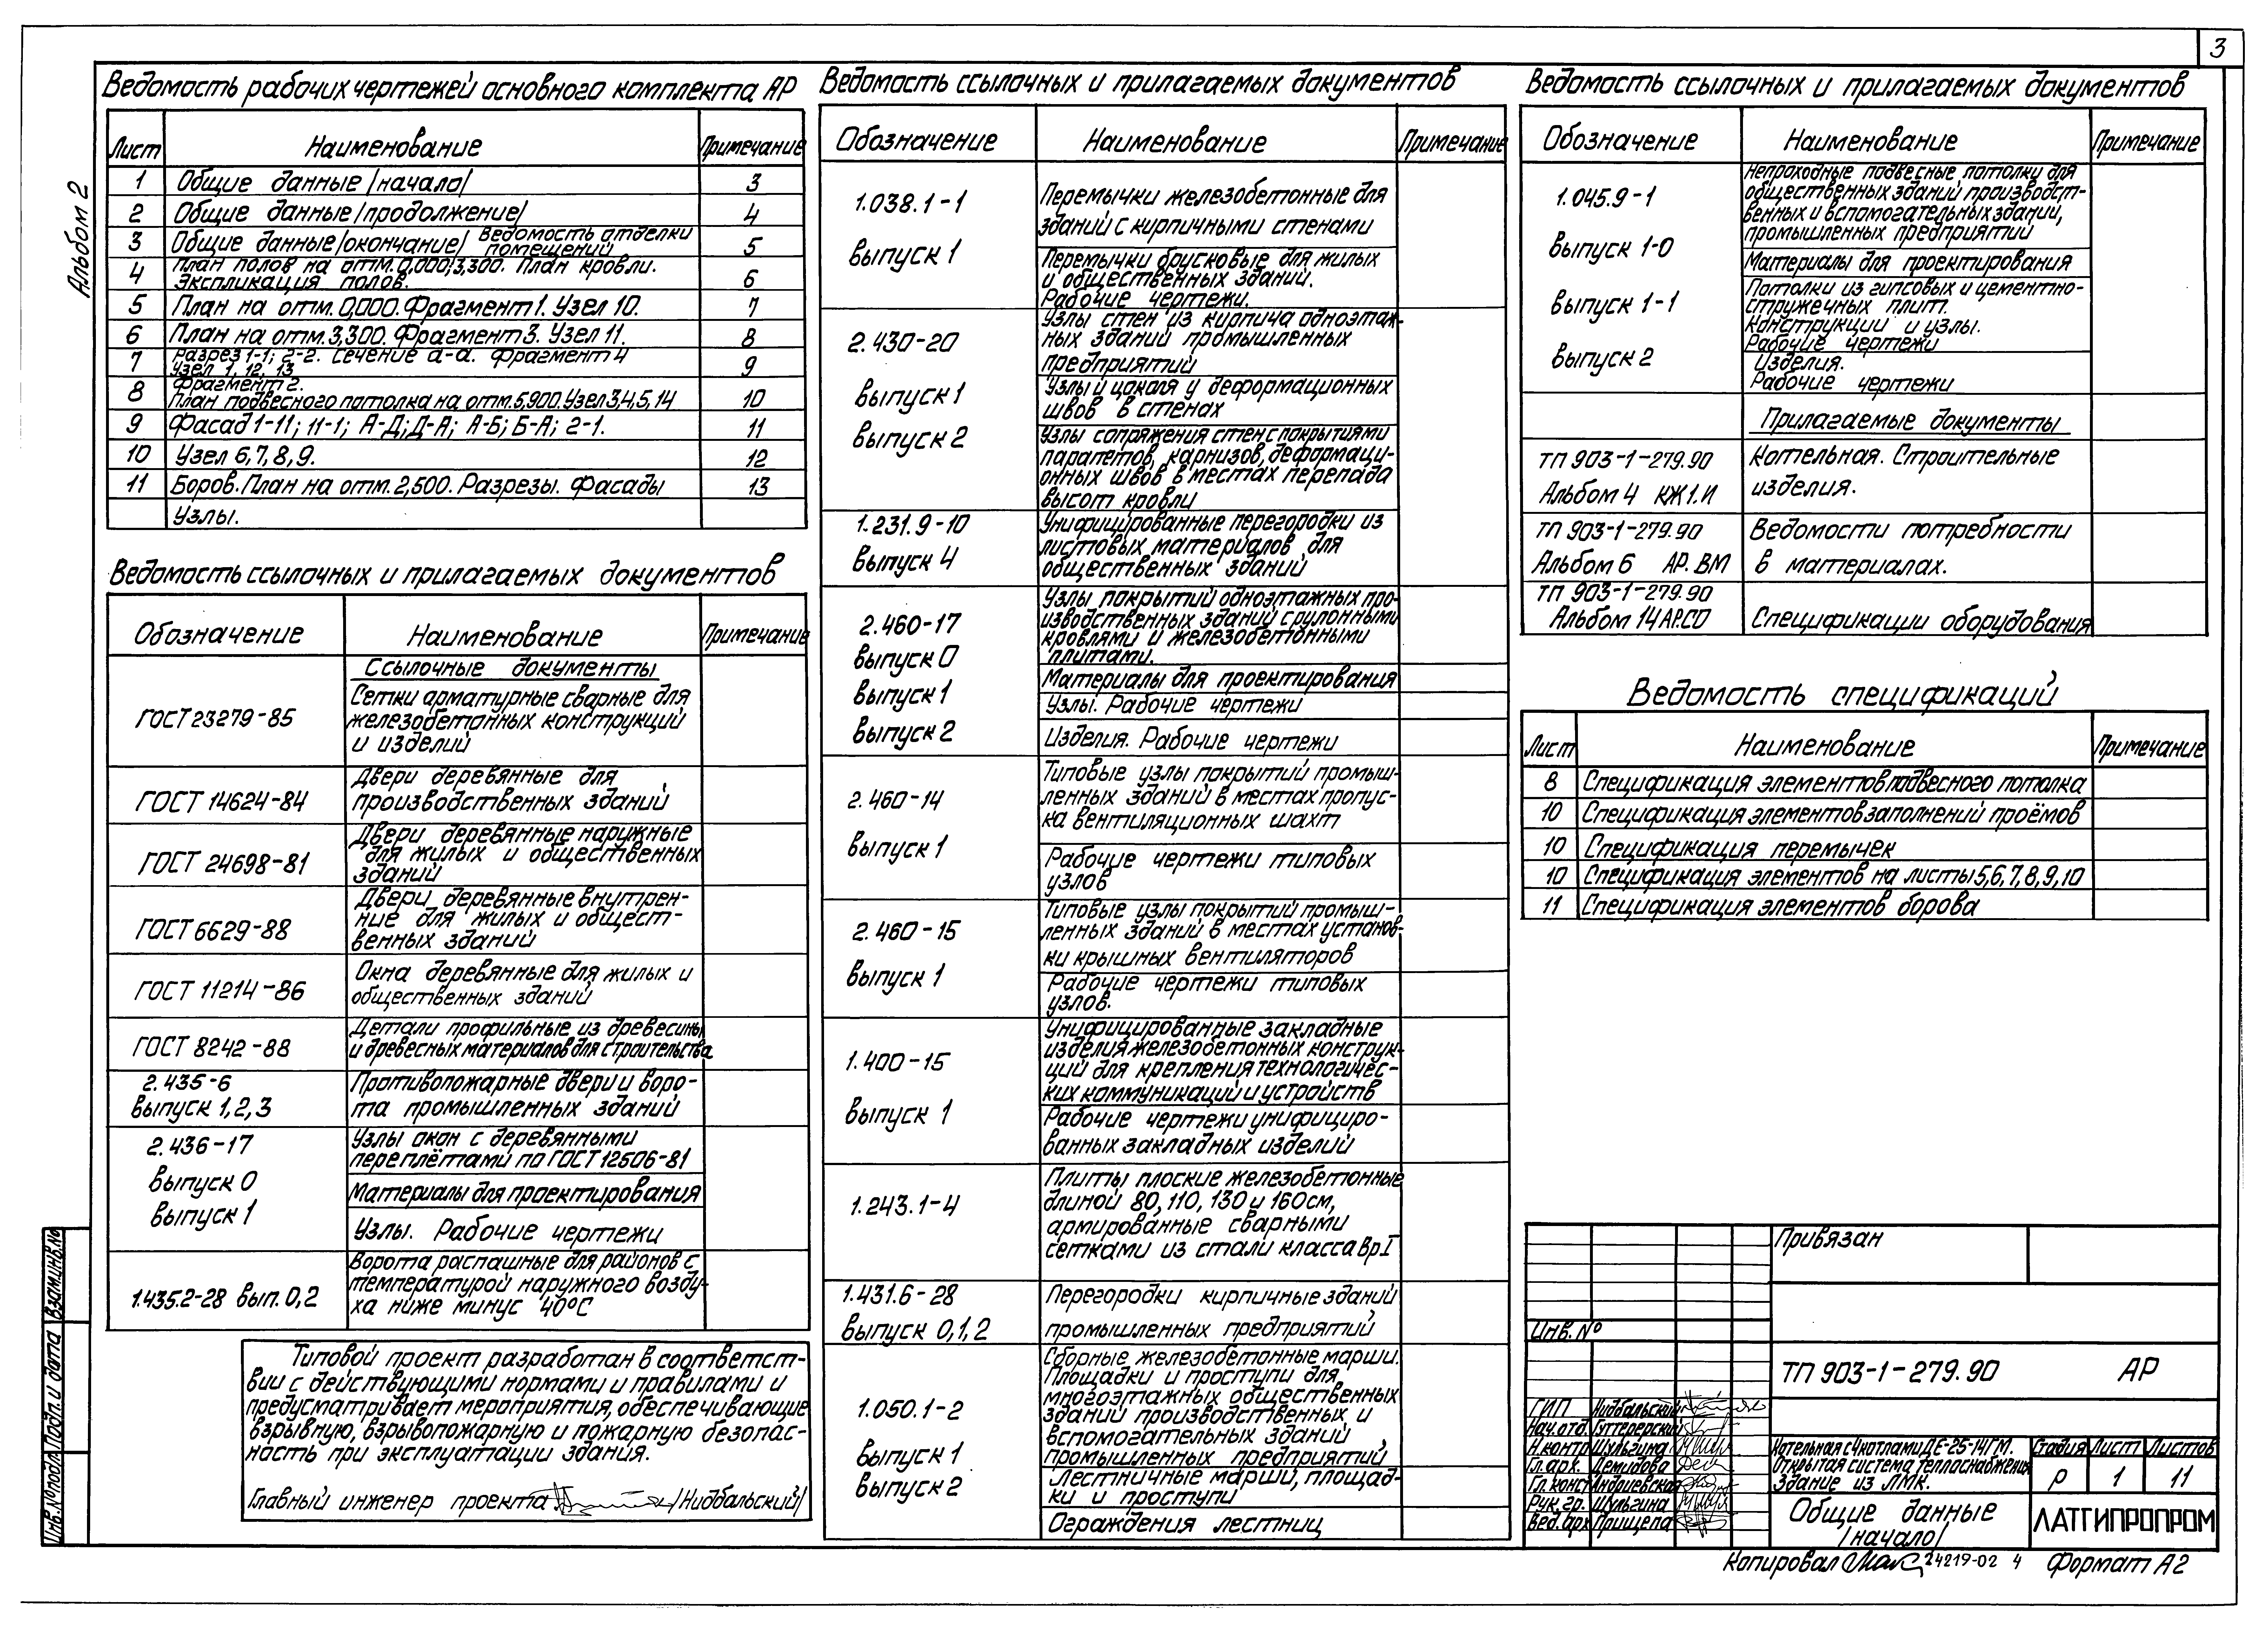 3
Альбом 2
Ведомость рабочих чертежей основного комплекта АР
Лист Наименование Примечание
1 Общие данные /начало/ 3
2 Общие данные /продолжение/ 4
3 Общие данные /окончание/ Ведомость отделки помещений 5
4 План полов на отм. 0,000; 3,300. План кровли. Экспликация полов. 6
5 План на отм. 0,000. Фрагмент 1. Узел 10. 7
6 План на отм. 3,300. Фрагмент 3. Узел 11. 8
7 Разрез 1-1; 2-2. Сечение а-а. Фрагмент 4 Узел 1, 12, 13 9
8 Фрагмент 2. План подвесного потолка на отм. 5,900. Узел 3,4,5,14 10
9 Фасад 1-11; 11-1; А-Д; Д-А; А-Б; Б-А; 2-1. 11
10 Узел 6,7,8,9. 12
11 Боров. План на отм. 2,500. Разрезы. Фасады 13
Узлы.
Ведомость ссылочных и прилагаемых документов
Обозначение Наименование Примечание
Ссылочные документы
ГОСТ 23279-85 Сетки арматурные сварные для
железобетонных конструкций
и изделий
ГОСТ 14624-84 Двери деревянные для
производственных зданий
ГОСТ 24698-81 Двери деревянные наружные
для жилых и общественных
зданий
ГОСТ 6629-88 Двери деревянные внутрен-
ние для жилых и общест-
венных зданий
ГОСТ 11214-86 Окна деревянные для жилых и
общественных зданий
ГОСТ 8242-88 Детали профильные из древесины
и древесных материалов для строительства
2.435-6 Противопожарные двери и воро-
выпуск 1,2,3 та промышленных зданий
2.436-17 Узлы окон с деревянными
переплётами по ГОСТ 12506-81
выпуск 0 Материалы для проектирования
выпуск 1 Узлы. Рабочие чертежи
1.435.2-28 вып. 0,2 Ворота распашные для районов с
температурой наружного возду-
ха ниже минус 40°С
Типовой проект разработан в соответст-
вии с действующими нормами и правилами и
предусматривает мероприятия, обеспечивающие
взрывную, взрывопожарную и пожарную безопас-
ность при эксплуатации здания.
Главный инженер проекта /Нидбальский/
Ведомость ссылочных и прилагаемых документов
Обозначение Наименование Примечание
1.038.1-1 Перемычки железобетонные для
зданий с кирпичными стенами
выпуск 1 Перемычки брусковые для жилых
и общественных зданий.
Рабочие чертежи.
2.430-20 Узлы стен из кирпича одноэтаж-
ных зданий промышленных
предприятий
выпуск 1 Узлы и цоколя у деформационных
швов в стенах
выпуск 2 Узлы сопряжения стен с покрытиями
парапетов, карнизов, деформаци-
онных швов в местах перепада
высот кровли
1.231.9-10 Унифицированные перегородки из
выпуск 4 листовых материалов для
общественных зданий
2.460-17 Узлы покрытий одноэтажных про-
изводственных зданий с рулонными
кровлями и железобетонными
плитами.
выпуск 0 Материалы для проектирования
выпуск 1 Узлы. Рабочие чертежи
выпуск 2 Изделия. Рабочие чертежи
2.460-14 Типовые узлы покрытий промыш-
ленных зданий в местах пропус-
ка вентиляционных шахт
выпуск 1 Рабочие чертежи типовых
узлов
2.460-15 Типовые узлы покрытий промыш-
ленных зданий в местах установ-
ки крышных вентиляторов
выпуск 1 Рабочие чертежи типовых
узлов.
1.400-15 Унифицированные закладные
изделия железобетонных конструк-
ций для крепления технологичес-
ких коммуникаций и устройств
выпуск 1 Рабочие чертежи унифициро-
ванных закладных изделий
1.243.1-4 Плиты плоские железобетонные
длиной 80, 110, 130 и 160см,
армированные сварными
сетками из стали класса Вр I
1.431.6-28 Перегородки кирпичные зданий
выпуск 0,1,2 промышленных предприятий
1.050.1-2 Сборные железобетонные марши.
Площадки и проступи для
многоэтажных общественных
зданий производственных, и
вспомогательных зданий
промышленных предприятий
выпуск 1 Лестничные марши, площад-
ки и проступи
выпуск 2 Ограждения лестниц
Ведомость ссылочных и прилагаемых документов
Обозначение Наименование Примечание
1.045.9-1 Непроходные подвесные потолки для
общественных зданий производст-
венных и вспомогательных зданий,
промышленных предприятий
выпуск 1-0 Материалы для проектирования
выпуск 1-1 Потолки из гипсовых и цементно-
стружечных плит.
Конструкции и узлы.
Рабочие чертежи
выпуск 2 Изделия.
Рабочие чертежи
Прилагаемые документы
ТП 903-1-279.90 Котельная. Строительные
Альбом 4 КЖ1.И изделия.
ТП 903-1-279.90 Ведомости потребности
Альбом 6 АР.ВМ в материалах.
ТП 903-1-279.90
Альбом 14 АР.СО Спецификации оборудования
Ведомость спецификаций
Лист Наименование Примечание
8 Спецификация элементов подвесного потолка
10 Спецификация элементов заполнений проёмов
10 Спецификация перемычек
10 Спецификация элементов на листы 5,6,7,8,9,10
11 Спецификация элементов борова
Привязан
Инв. №
ТП 903-1-279.90 АР
ГИП Нидбальский
Нач.отд. Гуттерерский
Н.контр Шульгина
Гл.арх. Демидова
Гл.конст Андриевская
Рук.гр. Шульгина
Вед.арх Прищепа
Котельная с 4 котлами ДЕ-25-14ГМ.
Открытая система теплоснабжения
Здание из ЛМК.
Стадия Лист Листов
Р 1 11
Общие данные
/начало/
ЛАТГИПРОПРОМ
Копировал 24219-02 4 Формат А2
Взам.инв.№
Подп. и дата
Инв.№подл.